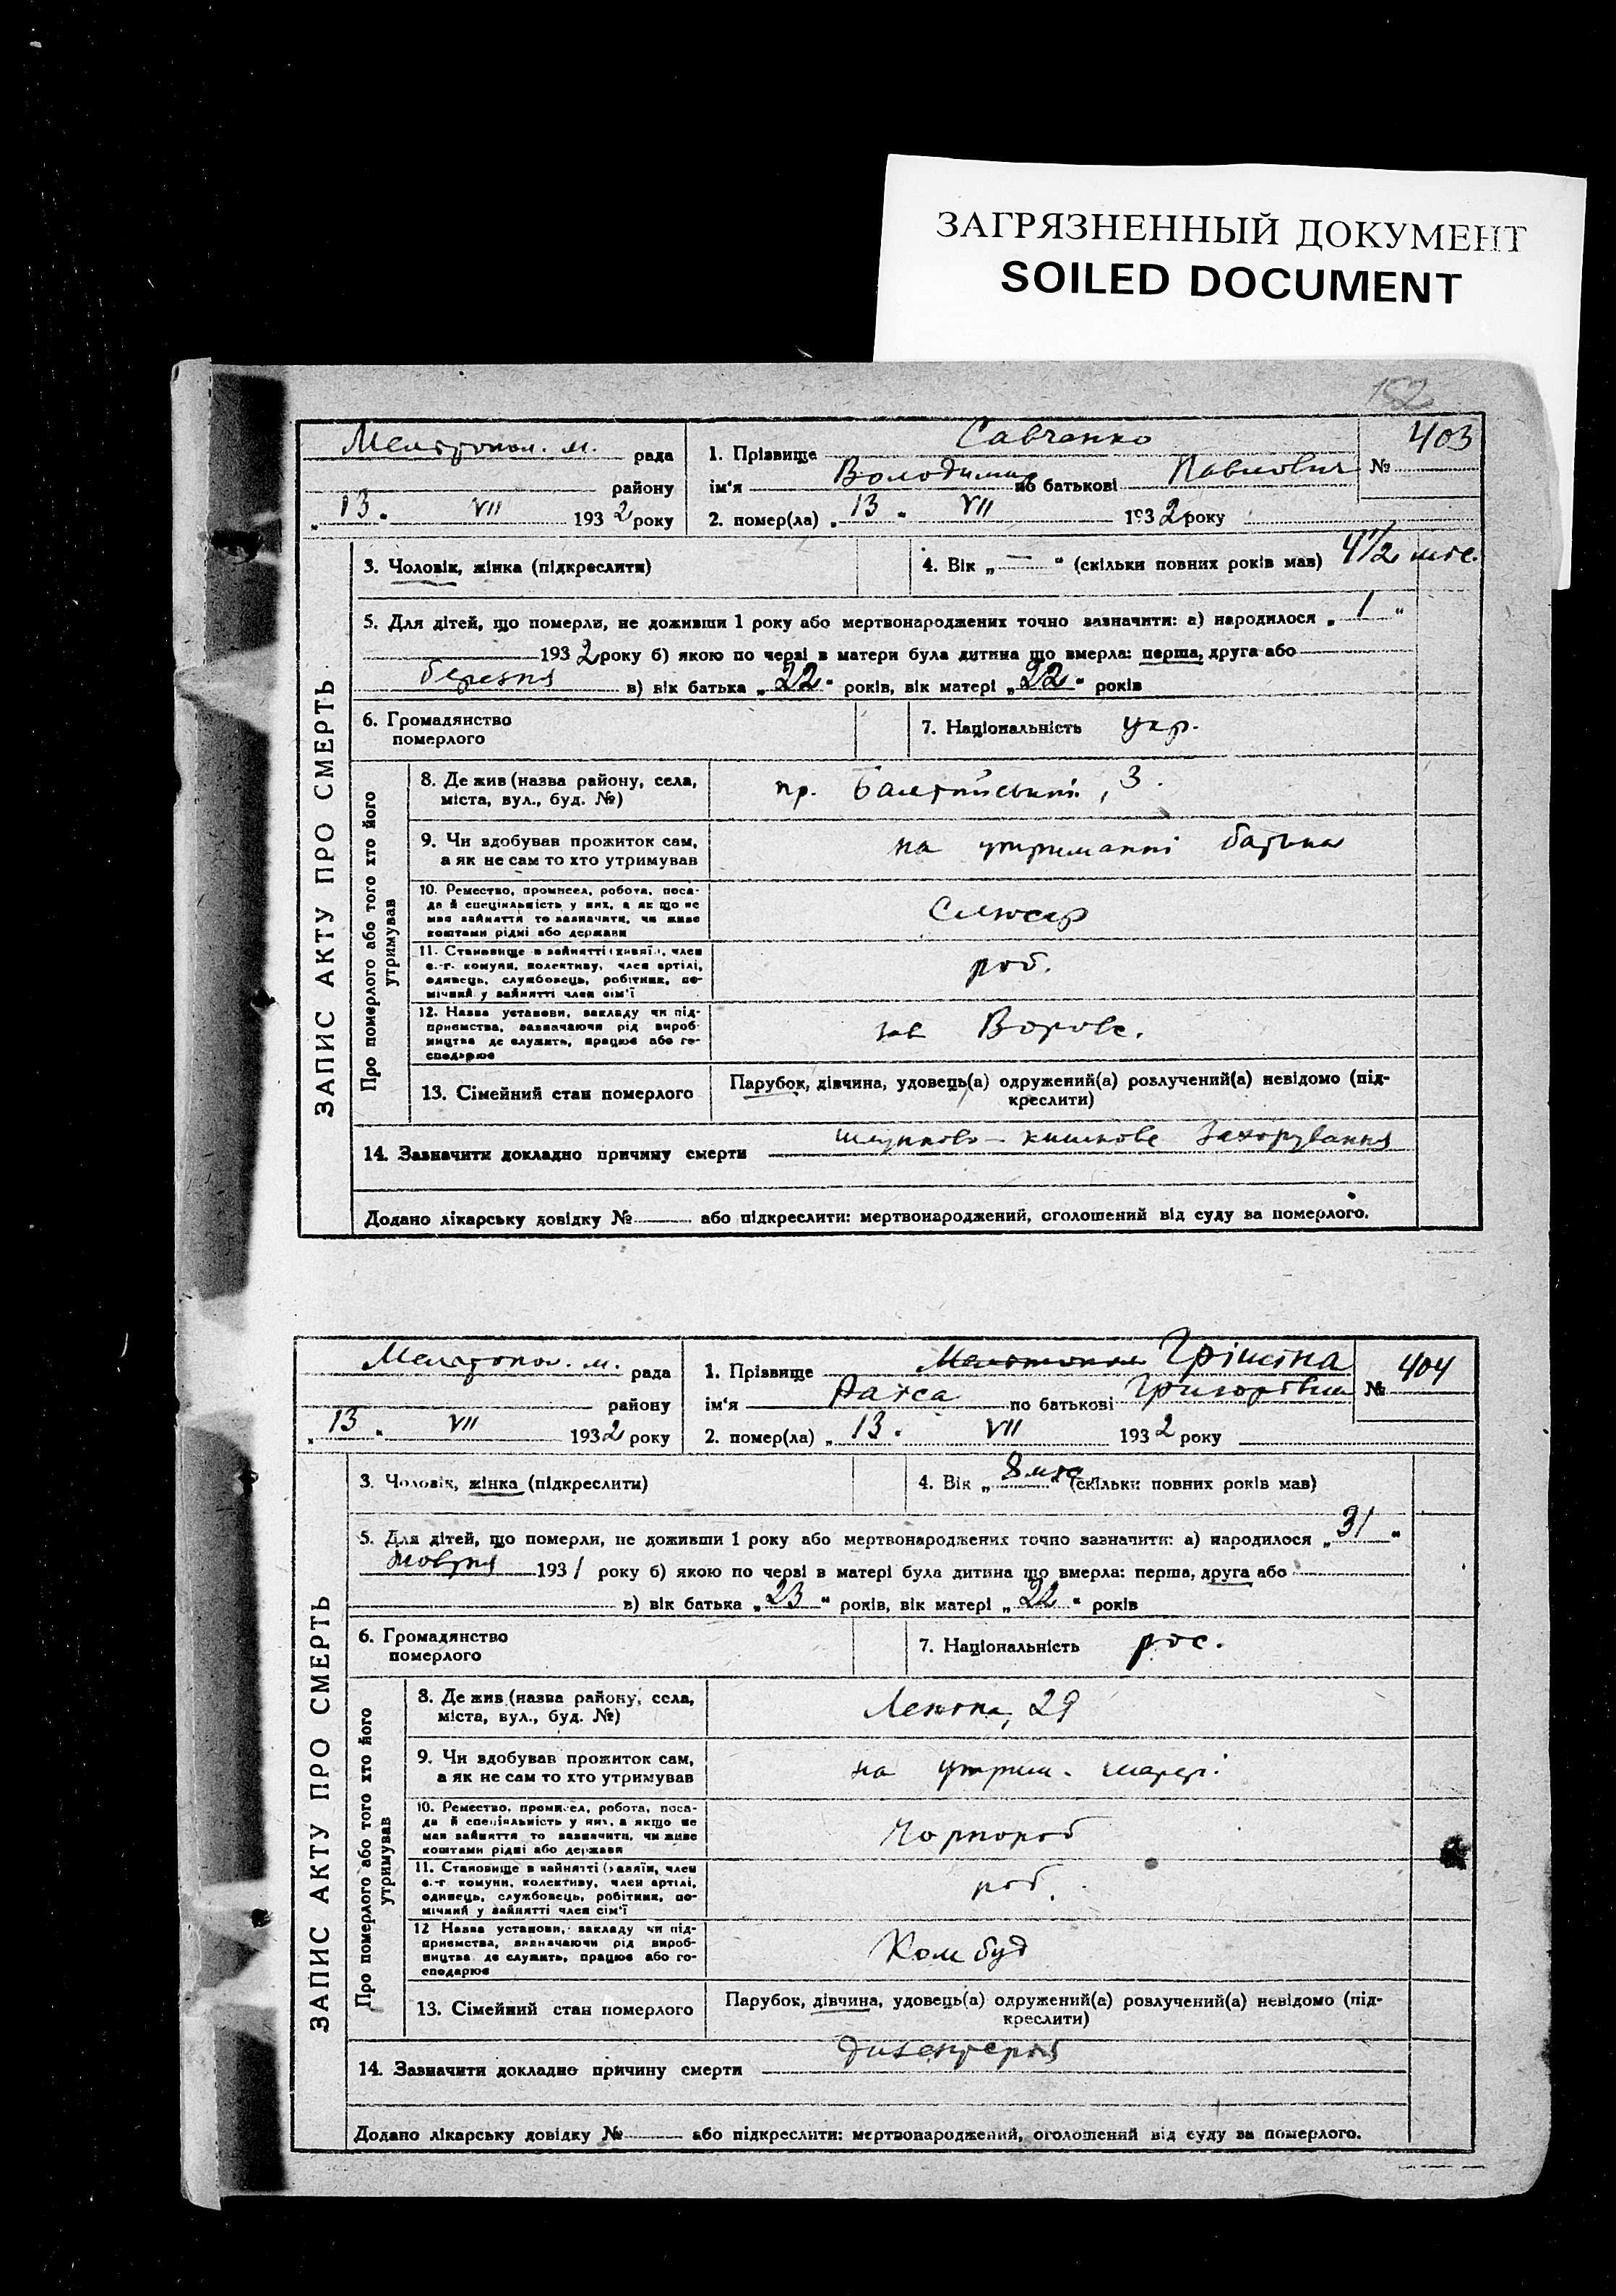 ЗАГРЯЗНЕННЫЙ ДОКУМЕНТ
SOILED DOCUMENT
152
ЗАПИС АКТУ ПРО СМЕРТЬ
Мелітопол. м. рада
району
„ 13 “ VII 1932 року
1. Прізвище Савченко
ім‘я Володимир по батькові Павлович
№ 403
2. помер(ла) „ 13 “ VII 1932 року
3. Чоловік, жінка (підкреслити)
4. Вік „ — “ (скільки повних років мав) 4 1/2 міс.
5. Для дітей, що померли, не доживши 1 року або мертвонароджених точно зазначити: а) народилося „ 1 “
1932 року б) якою по черзі в матери була дитина що вмерла: перша, друга або
березня в) вік батька „ 22 “ років, вік матері „ 22 “ років
6. Громадянство
померлого
7. Національність укр.
Про померлого або того хто його
утримував
8. Де жив (назва району, села,
міста, вул., буд. №)
пр. Балтійський, 3.
9. Чи здобував прожиток сам,
а як не сам то хто утримував
на утриманні батька
10. Ремество, промисел, робота, поса-
да й спеціяльність у них, а як що не
мав зайняття то зазначити, чи живе
коштами рідні або держави
Слюсар
11. Становище в зайнятті (хазяїн, член
с.-г. комуни, колективу, член артілі,
одинець, службовець, робітник, по-
мічний у зайнятті член сім‘ї
роб.
12. Назва установи, закладу чи під-
приємства, зазначаючи рід вироб-
ництва де служить, працює або го-
сподарює
зав Воров.
13. Сімейний стан померлого
Парубок, дівчина, удовець(а) одружений(а) розлучений(а) невідомо (під-
креслити)
14. Зазначити докладно причину смерти шлунково-кишкове захорування
Додано лікарську довідку № — або підкреслити: мертвонароджений, оголошений від суду за померлого.
ЗАПИС АКТУ ПРО СМЕРТЬ
Мелітопол. м. рада
району
„ 13 “ VII 1932 року
1. Прізвище Грішіна
ім‘я Раїса по батькові Григорівна
№ 404
2. помер(ла) „ 13 “ VII 1932 року
3. Чоловік, жінка (підкреслити)
4. Вік „ 8 міс “ (скільки повних років мав)
5. Для дітей, що померли, не доживши 1 року або мертвонароджених точно зазначити: а) народилося „ 31 “
жовтня 1931 року б) якою по черзі в матері була дитина що вмерла: перша, друга або
в) вік батька „ 23 “ років, вік матері „ 22 “ років
6. Громадянство
померлого
7. Національність рос.
Про померлого або того хто його
утримував
8. Де жив (назва району, села,
міста, вул., буд. №)
Леніна, 29
9. Чи здобував прожиток сам,
а як не сам то хто утримував
на утрим. матері.
10. Ремество, промисел, робота, поса-
да й спеціяльність у них, а якщо не
мав зайняття то зазначити, чи живе
коштами рідні або держави
Чорнороб
11. Становище в зайнятті (хазяїн, член
с.-г комуни, колективу, член артілі,
одинець, службовець, робітник, по-
мічний у зайнятті член сім‘ї
роб.
12 Назва установи, закладу чи під-
приємства, зазначаючи рід вироб-
ництва де служить, працює або го-
сподарює
Комбуд
13. Сімейний стан померлого
Парубок, дівчина, удовець(а) одружений(а) розлучений(а) невідомо (під-
креслити)
14. Зазначити докладно причину смерти дизентерія
Додано лікарську довідку № — або підкреслити: мертвонароджений, оголошений від суду за померлого.